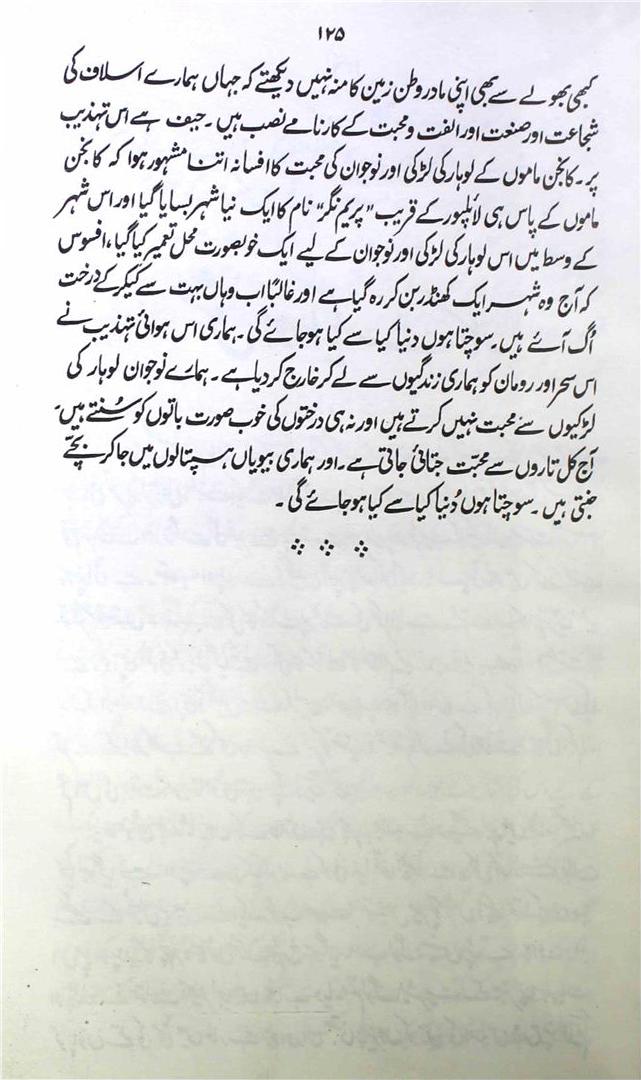 ۱۲۵
کبھی بھولے سے بھی اپنی مادر وطن زمین کا منہ نہیں دیکھتے کہ جہاں ہمارے اسلاف کی
شجاعت اور صنعت اور الفت و محبت کے کارنامے نصب ہیں۔ حیف ہے اس تہذیب
پر۔ کانجن ماموں کے لوہار کی لڑکی اور نوجوان کی محبت کا افسانہ اتنا مشہور ہوا کہ کانجن
ماموں کے پاس ہی لائلپور کے قریب "پریم نگر" نام کا ایک نیا شہر بسایا گیا اور اس شہر
کے وسط میں اس لوہار کی لڑکی اور نوجوان کے لیے ایک خوبصورت محل تعمیر کیا گیا، افسوس
کہ آج وہ شہر ایک کھنڈر بن کر رہ گیا ہے اور غالباً اب وہاں بہت سے کیکر کے درخت
اُگ آئے ہیں۔ سوچتا ہوں دنیا کیا سے کیا ہو جائے گی۔ ہماری اس ہوائی تہذیب نے
اس سحر اور رومان کو ہماری زندگیوں سے لے کر خارج کر دیا ہے۔ ہمارے نوجوان لوہار کی
لڑکیوں سے محبت نہیں کرتے ہیں اور نہ ہی درختوں کی خوب صورت باتوں کو سُنتے ہیں۔
آج کل تاروں سے محبّت جتائی جاتی ہے۔ اور ہماری بیویاں ہسپتالوں میں جا کر بچّے
جنتی ہیں۔ سوچتا ہوں دُنیا کیا سے کیا ہو جائے گی۔